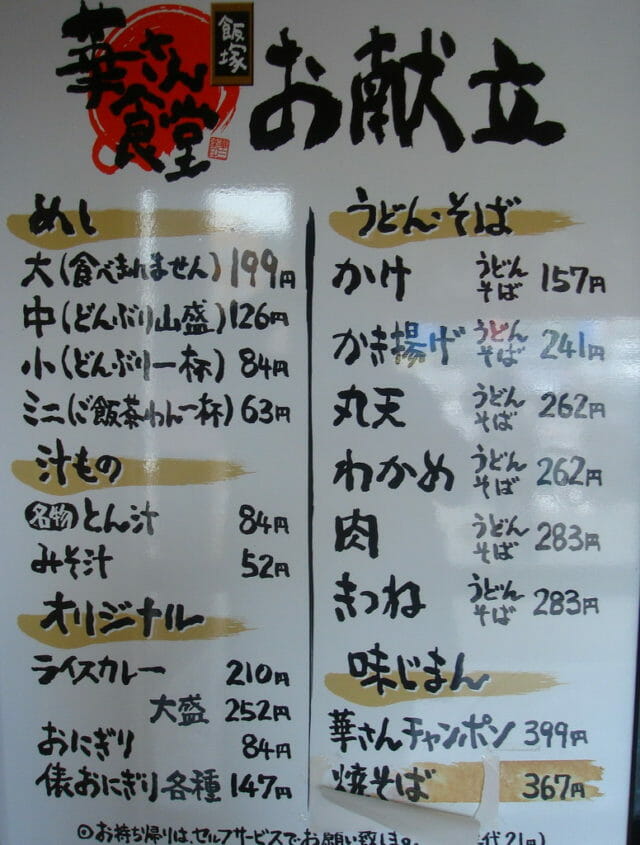 飯塚
華さん食堂
お献立
めし
大(食べきれません) 199円
中(どんぶり山盛) 126円
小(どんぶり一杯) 84円
ミニ(ご飯茶わん一杯) 63円
汁もの
名物 とん汁 84円
みそ汁 52円
オリジナル
ライスカレー 210円
大盛 252円
おにぎり 84円
俵おにぎり各種 147円
うどん・そば
かけ うどん そば 157円
かき揚げ うどん そば 241円
丸天 うどん そば 262円
わかめ うどん そば 262円
肉 うどん そば 283円
きつね うどん そば 283円
味じまん
華さんチャンポン 399円
焼そば 367円
◎お持ち帰りは、セルフサービスでお願い致します。 代21円)